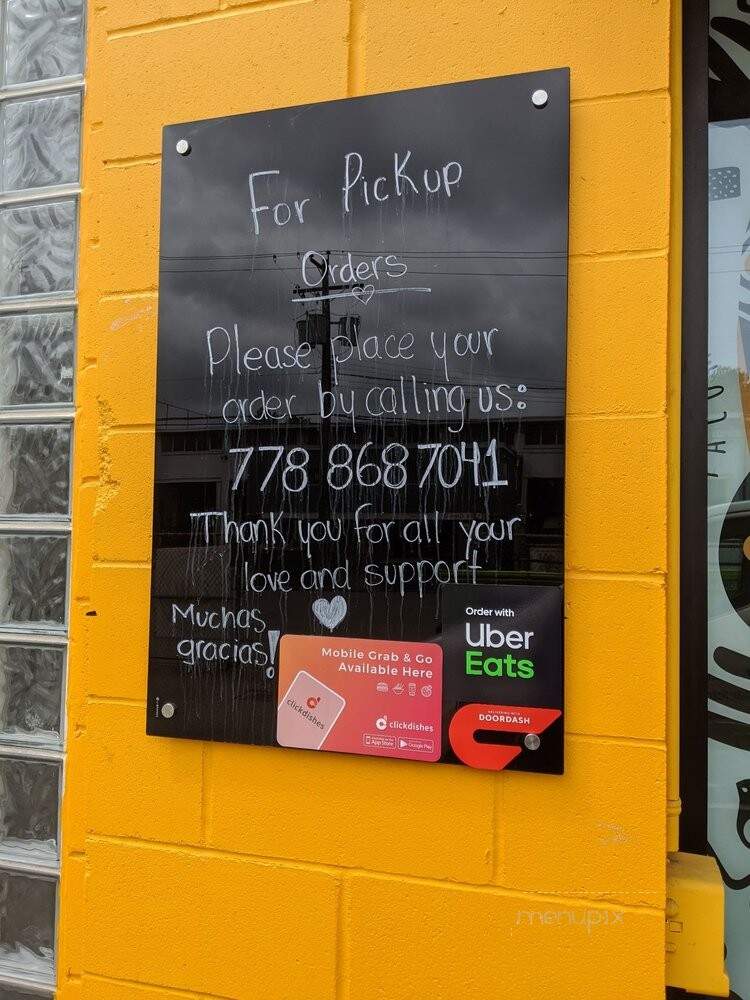 For Pickup
Orders
Please place your
order by calling us:
778 868 7041
Thank you for all your
love and support
Muchas
gracias!
Order with
Uber
Eats
Mobile Grab & Go
Available Here
clickdishes
clickdishes
App Store
Google Play
DOORDASH
TACO
menupix